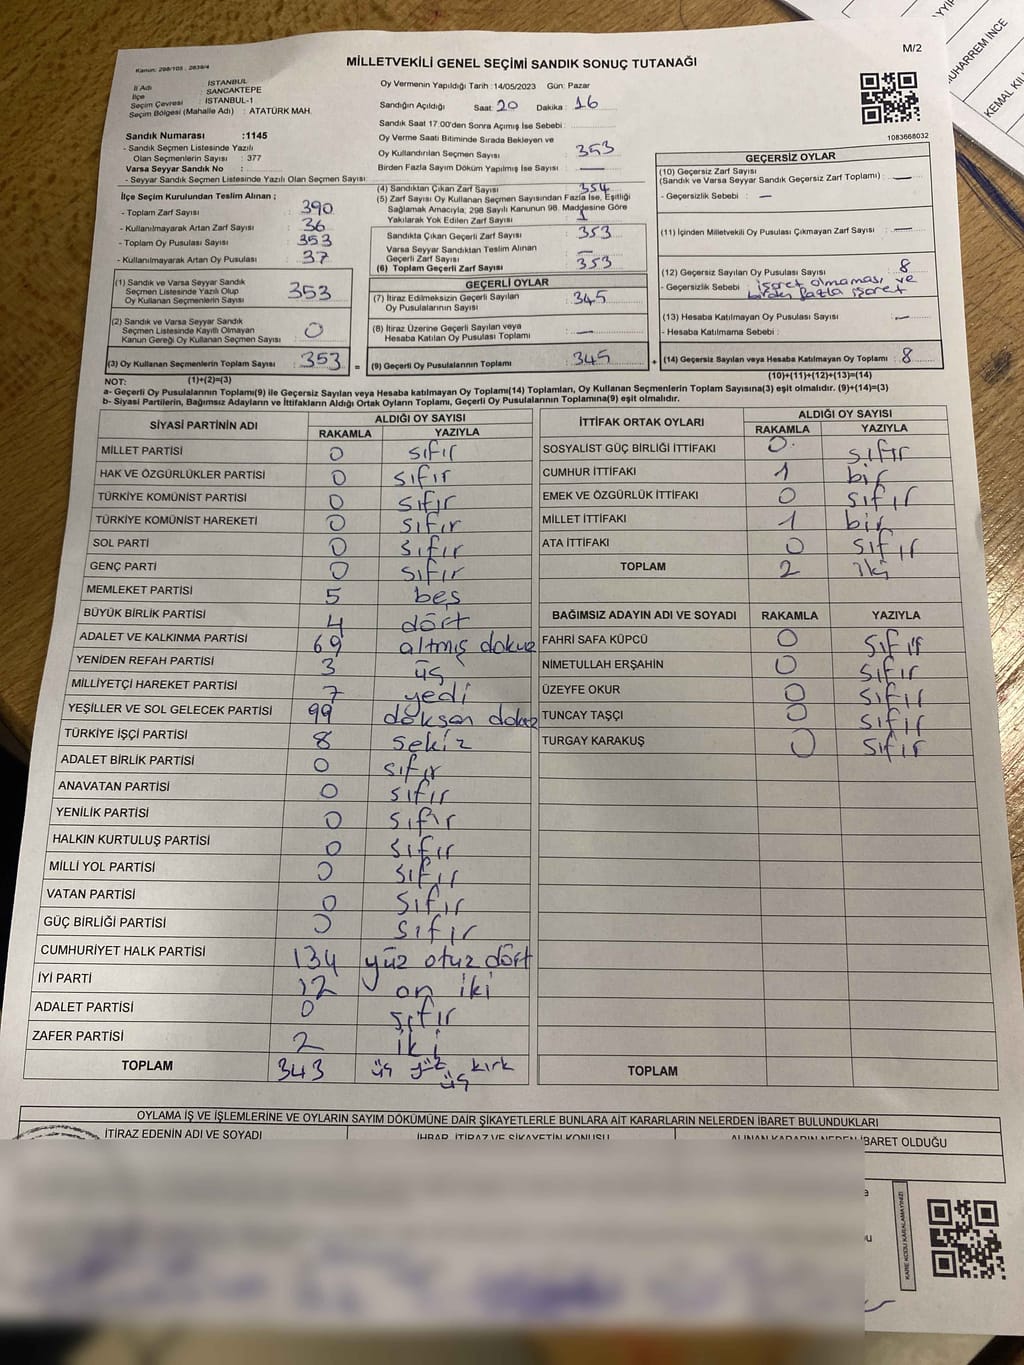 M/2
MİLLETVEKİLİ GENEL SEÇİMİ SANDIK SONUÇ TUTANAĞI
Kanun: 298/105 , 2839/4
İl Adı : İSTANBUL
İlçe : SANCAKTEPE
Seçim Çevresi : İSTANBUL-1
Seçim Bölgesi (Mahalle Adı) : ATATÜRK MAH.
Sandık Numarası :1145
- Sandık Seçmen Listesinde Yazılı
Olan Seçmenlerin Sayısı : 377
Varsa Seyyar Sandık No :
- Seyyar Sandık Seçmen Listesinde Yazılı Olan Seçmen Sayısı:
Oy Vermenin Yapıldığı Tarih :14/05/2023 Gün: Pazar
Sandığın Açıldığı Saat: 20 Dakika : 16
Sandık Saat 17.00'den Sonra Açımış İse Sebebi :
Oy Verme Saati Bitiminde Sırada Bekleyen ve
Oy Kullandırılan Seçmen Sayısı : 353
Birden Fazla Sayım Döküm Yapılmış İse Sayısı : —
1083668032
İlçe Seçim Kurulundan Teslim Alınan ;
- Toplam Zarf Sayısı : 390
- Kullanılmayarak Artan Zarf Sayısı : 36
- Toplam Oy Pusulası Sayısı : 353
- Kullanılmayarak Artan Oy Pusulası : 37
(1) Sandık ve Varsa Seyyar Sandık
Seçmen Listesinde Yazılı Olup
Oy Kullanan Seçmenlerin Sayısı : 353
(2) Sandık ve Varsa Seyyar Sandık
Seçmen Listesinde Kayıtlı Olmayan
Kanun Gereği Oy Kullanan Seçmen Sayısı : 0
(3) Oy Kullanan Seçmenlerin Toplam Sayısı : 353
(1)+(2)=(3)
(4) Sandıktan Çıkan Zarf Sayısı : 354
(5) Zarf Sayısı Oy Kullanan Seçmen Sayısından Fazla İse, Eşitliği
Sağlamak Amacıyla, 298 Sayılı Kanunun 98. Maddesine Göre
Yakılarak Yok Edilen Zarf Sayısı : 1
Sandıkta Çıkan Geçerli Zarf Sayısı : 353
Varsa Seyyar Sandıktan Teslim Alınan
Geçerli Zarf Sayısı : —
(6) Toplam Geçerli Zarf Sayısı : 353
GEÇERLİ OYLAR
(7) İtiraz Edilmeksizin Geçerli Sayılan
Oy Pusulası Sayısı : 345
(8) İtiraz Üzerine Geçerli Sayılan veya
Hesaba Katılan Oy Pusulası Toplamı : —
= (9) Geçerli Oy Pusulalarının Toplamı : 345
GEÇERSİZ OYLAR
(10) Geçersiz Zarf Sayısı
(Sandık ve Varsa Seyyar Sandık Geçersiz Zarf Toplamı) : —
- Geçersizlik Sebebi : —
(11) İçinden Milletvekili Oy Pusulası Çıkmayan Zarf Sayısı : —
(12) Geçersiz Sayılan Oy Pusulası Sayısı : 8
- Geçersizlik Sebebi : işaret olmaması ve
birden fazla işaret
(13) Hesaba Katılmayan Oy Pusulası Sayısı : —
- Hesaba Katılmama Sebebi :
+ (14) Geçersiz Sayılan veya Hesaba Katılmayan Oy Toplamı : 8
(10)+(11)+(12)+(13)=(14)
NOT:
a- Geçerli Oy Pusulalarının Toplamı(9) ile Geçersiz Sayılan veya Hesaba Katılmayan Oy Toplamı(14) Toplamları, Oy Kullanan Seçmenlerin Toplam Sayısına(3) eşit olmalıdır. (9)+(14)=(3)
b- Siyasi Partilerin, Bağımsız Adayların ve İttifakların Aldığı Ortak Oyların Toplamı, Geçerli Oy Pusulalarının Toplamına(9) eşit olmalıdır.
SİYASİ PARTİNİN ADI ALDIĞI OY SAYISI
RAKAMLA YAZIYLA
MİLLET PARTİSİ 0 sıfır
HAK VE ÖZGÜRLÜKLER PARTİSİ 0 sıfır
TÜRKİYE KOMÜNİST PARTİSİ 0 sıfır
TÜRKİYE KOMÜNİST HAREKETİ 0 sıfır
SOL PARTİ 0 sıfır
GENÇ PARTİ 0 sıfır
MEMLEKET PARTİSİ 5 beş
BÜYÜK BİRLİK PARTİSİ 4 dört
ADALET VE KALKINMA PARTİSİ 69 altmış dokuz
YENİDEN REFAH PARTİSİ 3 üç
MİLLİYETÇİ HAREKET PARTİSİ 7 yedi
YEŞİLLER VE SOL GELECEK PARTİSİ 99 doksan dokuz
TÜRKİYE İŞÇİ PARTİSİ 8 sekiz
ADALET BİRLİK PARTİSİ 0 sıfır
ANAVATAN PARTİSİ 0 sıfır
YENİLİK PARTİSİ 0 sıfır
HALKIN KURTULUŞ PARTİSİ 0 sıfır
MİLLİ YOL PARTİSİ 0 sıfır
VATAN PARTİSİ 0 sıfır
GÜÇ BİRLİĞİ PARTİSİ 0 sıfır
CUMHURİYET HALK PARTİSİ 134 yüz otuz dört
İYİ PARTİ 12 on iki
ADALET PARTİSİ 0 sıfır
ZAFER PARTİSİ 2 iki
TOPLAM 343 üç yüz kırk üç
İTTİFAK ORTAK OYLARI ALDIĞI OY SAYISI
RAKAMLA YAZIYLA
SOSYALİST GÜÇ BİRLİĞİ İTTİFAKI 0 sıfır
CUMHUR İTTİFAKI 1 bir
EMEK VE ÖZGÜRLÜK İTTİFAKI 0 sıfır
MİLLET İTTİFAKI 1 bir
ATA İTTİFAKI 0 sıfır
TOPLAM 2 iki
BAĞIMSIZ ADAYIN ADI VE SOYADI RAKAMLA YAZIYLA
FAHRİ SAFA KÜPCÜ 0 sıfır
NİMETULLAH ERŞAHİN 0 sıfır
ÜZEYFE OKUR 0 sıfır
TUNCAY TAŞÇI 0 sıfır
TURGAY KARAKUŞ 0 sıfır
TOPLAM
OYLAMA İŞ VE İŞLEMLERİNE VE OYLARIN SAYIM DÖKÜMÜNE DAİR ŞİKAYETLERLE BUNLARA AİT KARARLARIN NELERDEN İBARET BULUNDUKLARI
İTİRAZ EDENİN ADI VE SOYADI İHBAR, İTİRAZ VE ŞİKAYETİN KONUSU ALINAN KARARIN NEDEN İBARET OLDUĞU
KARE KODU KARALAMAYINIZ!
MUHARREM İNCE
KEMAL KIL